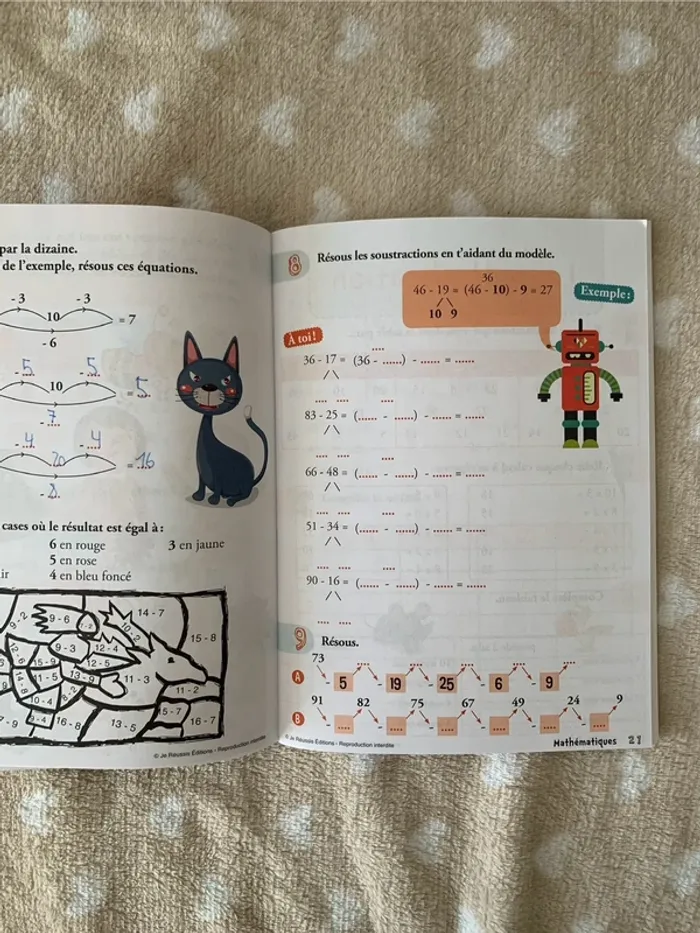 par la dizaine.
de l'exemple, résous ces équations.
- 3 - 3
10 = 7
- 6
- 5 - 5
10 = 5
- 7
- 4 - 4
20 = 16
- 8
cases où le résultat est égal à :
6 en rouge 3 en jaune
5 en rose
ir 4 en bleu foncé
9 - 2 9 - 6 10 - 2 14 - 7
15 - 8
9 - 3 12 - 4
12 - 6 15 - 9 12 - 5
14 - 8 11 - 5 13 - 9 11 - 3
11 - 2
10 - 4 8 - 2
7 - 9 16 - 8 13 - 5 15 - 7 16 - 7
© Je Réussis Éditions - Reproduction interdite
8 Résous les soustractions en t'aidant du modèle.
36
46 - 19 = (46 - 10) - 9 = 27
10 9
Exemple :
À toi !
....
36 - 17 = (36 - ......) - ...... = ......
.... .... ....
83 - 25 = (...... - ......) - ...... = ......
.... .... ....
66 - 48 = (...... - ......) - ...... = ......
.... .... ....
51 - 34 = (...... - ......) - ...... = ......
.... .... ....
90 - 16 = (...... - ......) - ...... = ......
.... ....
9 Résous.
73 .... .... .... .... ....
A - 5 - 19 - 25 - 6 - 9
91 82 75 67 49 24 9
B - .... - .... - .... - .... - .... - ....
© Je Réussis Éditions - Reproduction interdite
Mathématiques 21